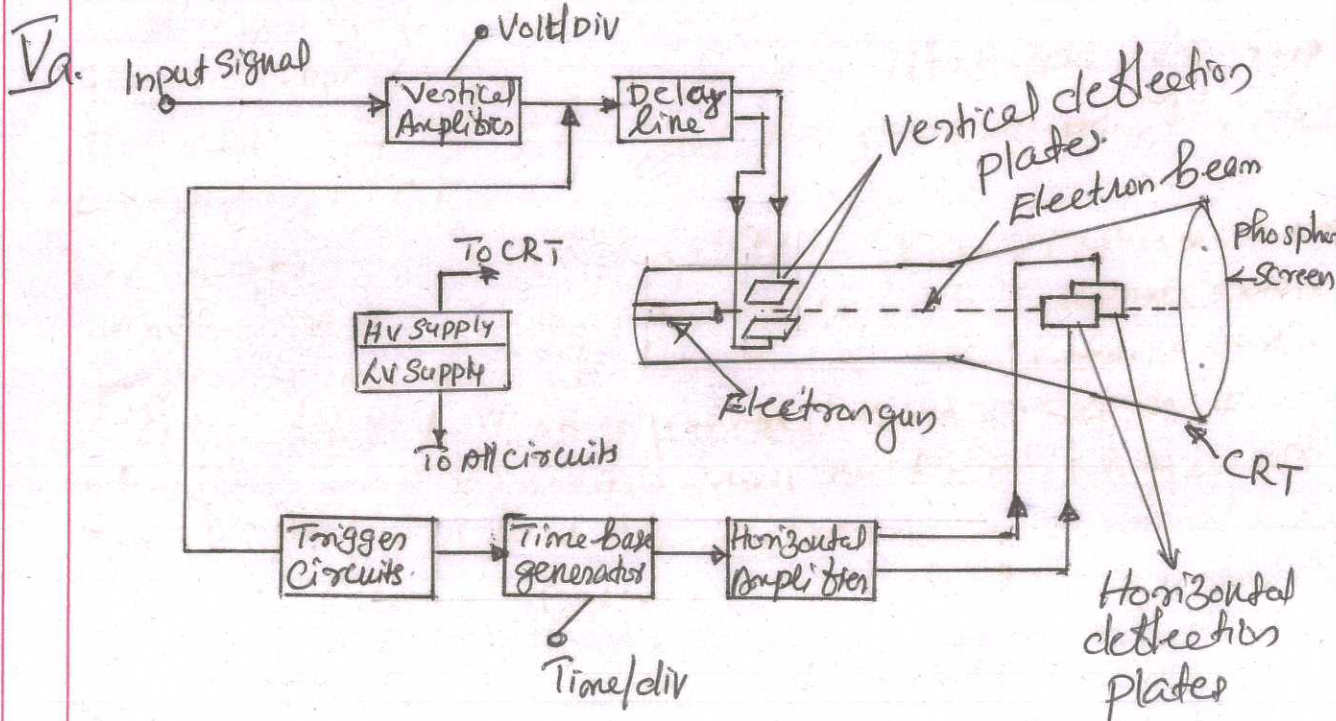 Va.
Input Signal
Volt/Div
Vertical
Amplifier
Delay
line
Vertical deflection
plates
Electron beam
phosphor
screen
To CRT
HV Supply
LV Supply
To All circuits
Electron gun
CRT
Trigger
Circuits
Time base
generator
Horizontal
Amplifier
Time/div
Horizontal
deflection
plates